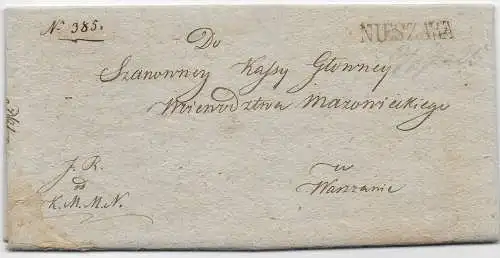 N. 385.
NIESZAWA
Do
Szanowney Kassy Głowney
Woiewodztwa Mazowieckiego
w
Warszawie
J. R.
K. M. M. N.